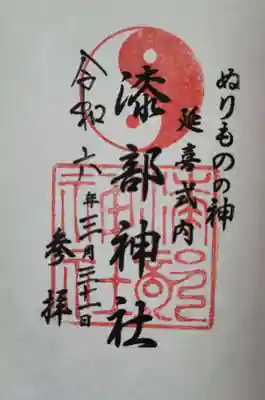 ぬりものの神
延喜式内
漆部神社
令和六年三月二十一日
参拝